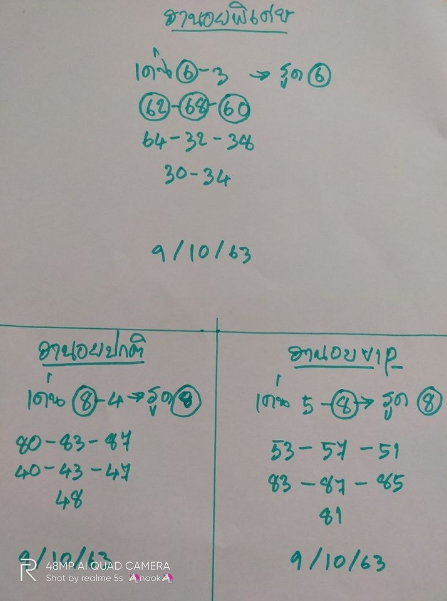 ฮานอยพิเศษ
เด่น 6-3 → รูด 6
62-68-60
64-32-38
30-34
9/10/63
ฮานอยปกติ
เด่น 8-4→รูด 8
80-83-87
40-43-47
48
9/10/63
ฮานอย VIP
เด่น 5-8→ รูด 8
53-57-51
83-87-85
81
9/10/63
48MP AI QUAD CAMERA
Shot by realme 5s AnookA